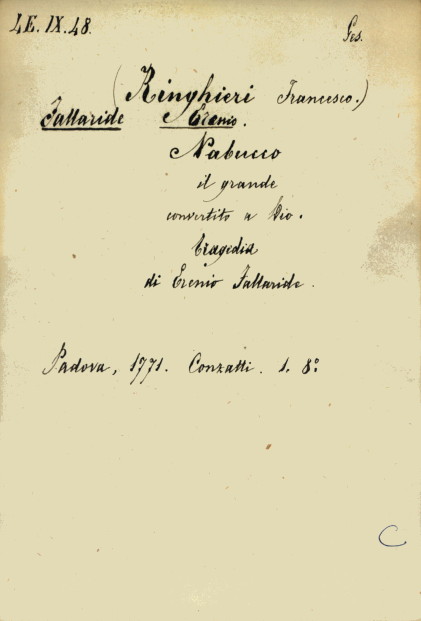 4E. IX. 48. Ges.
(Ringhieri Francesco.)
Fallaride Erenio.
Nabucco
il grande
convertito a Dio.
Tragedia
di Erenio Fallaride.
Padova, 1771. Conzatti. 1. 8°.
C